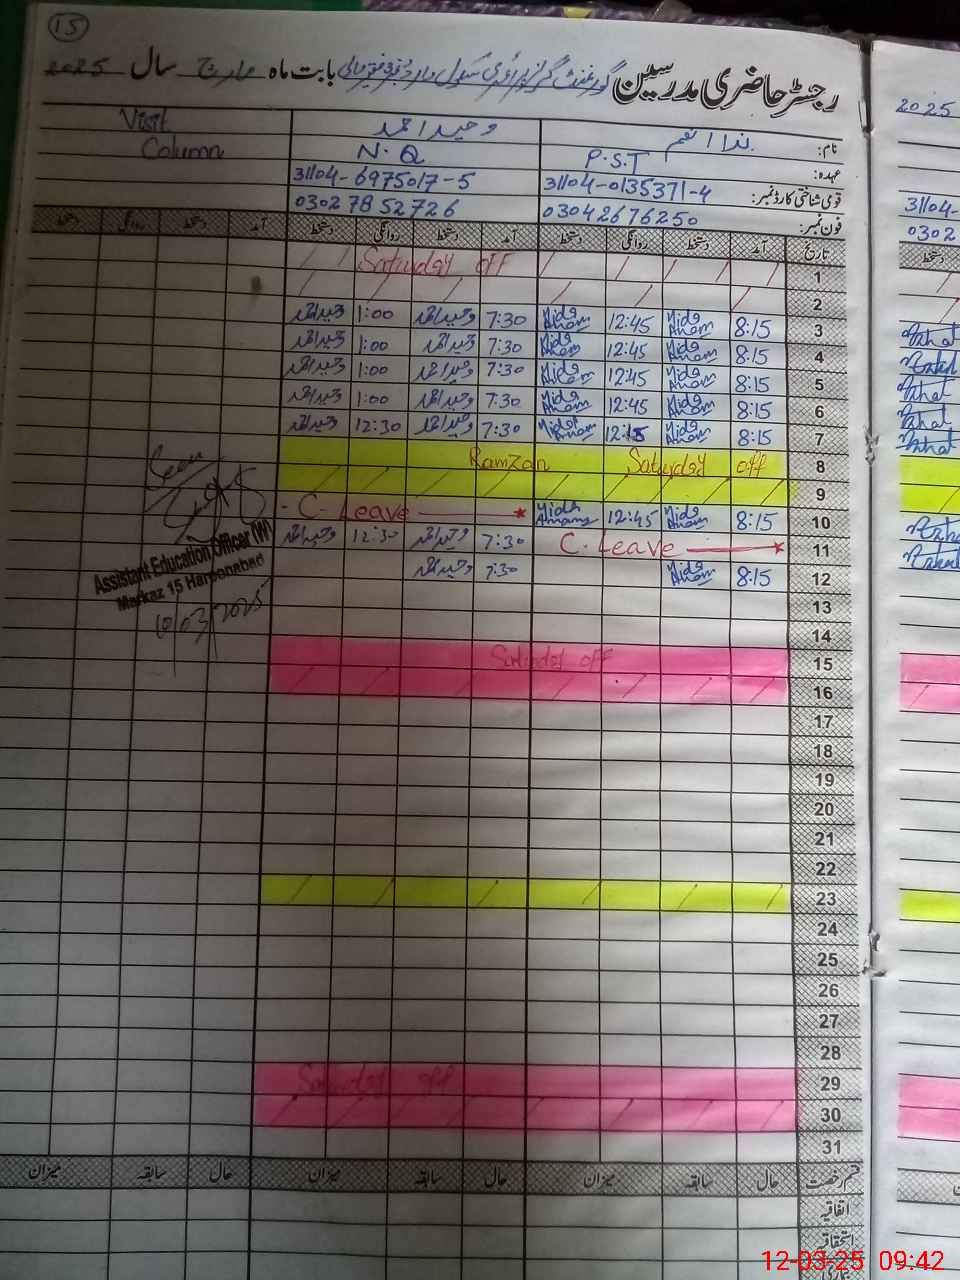 15
رجسٹر حاضری مدرسین گورنمنٹ گرلز پرائمری سکول بابت ماہ مارچ سال 2025
نام: ندا انعم وحید احمد Visit
عہدہ: P.S.T N.Q Column
قومی شناختی کارڈ نمبر: 31104-0135371-4 31104-6975017-5
فون نمبر: 03042676250 03027852726
تاریخ آمد دستخط روانگی دستخط آمد دستخط روانگی دستخط آمد دستخط روانگی دستخط
1 Saturday off
2
3 8:15 Nida Anam 12:45 Nida Anam 7:30 وحید احمد 1:00 وحید احمد
4 8:15 Nida Anam 12:45 Nida Anam 7:30 وحید احمد 1:00 وحید احمد
5 8:15 Nida Anam 12:45 Nida Anam 7:30 وحید احمد 1:00 وحید احمد
6 8:15 Nida Anam 12:45 Nida Anam 7:30 وحید احمد 1:00 وحید احمد
7 8:15 Nida Anam 12:15 Nida Anam 7:30 وحید احمد 12:30 وحید احمد
8 Ramzan Saturday off
9
10 8:15 Nida Anam 12:45 Nida Anam C. Leave
11 C. Leave 7:30 وحید احمد 12:30 وحید احمد
12 8:15 Nida Anam 7:30 وحید احمد
Seen
Assistant Education Officer (W)
Markaz 15 Haroonabad
10/03/2025
13
14
15 Saturday off
16
17
18
19
20
21
22
23
24
25
26
27
28
29 Saturday off
30
31
قسم رخصت حال سابقہ میزان حال سابقہ میزان حال سابقہ میزان
اتفاقیہ
استحقاقیہ
2025
31104-
0302
دستخط
12-03-25 09:42